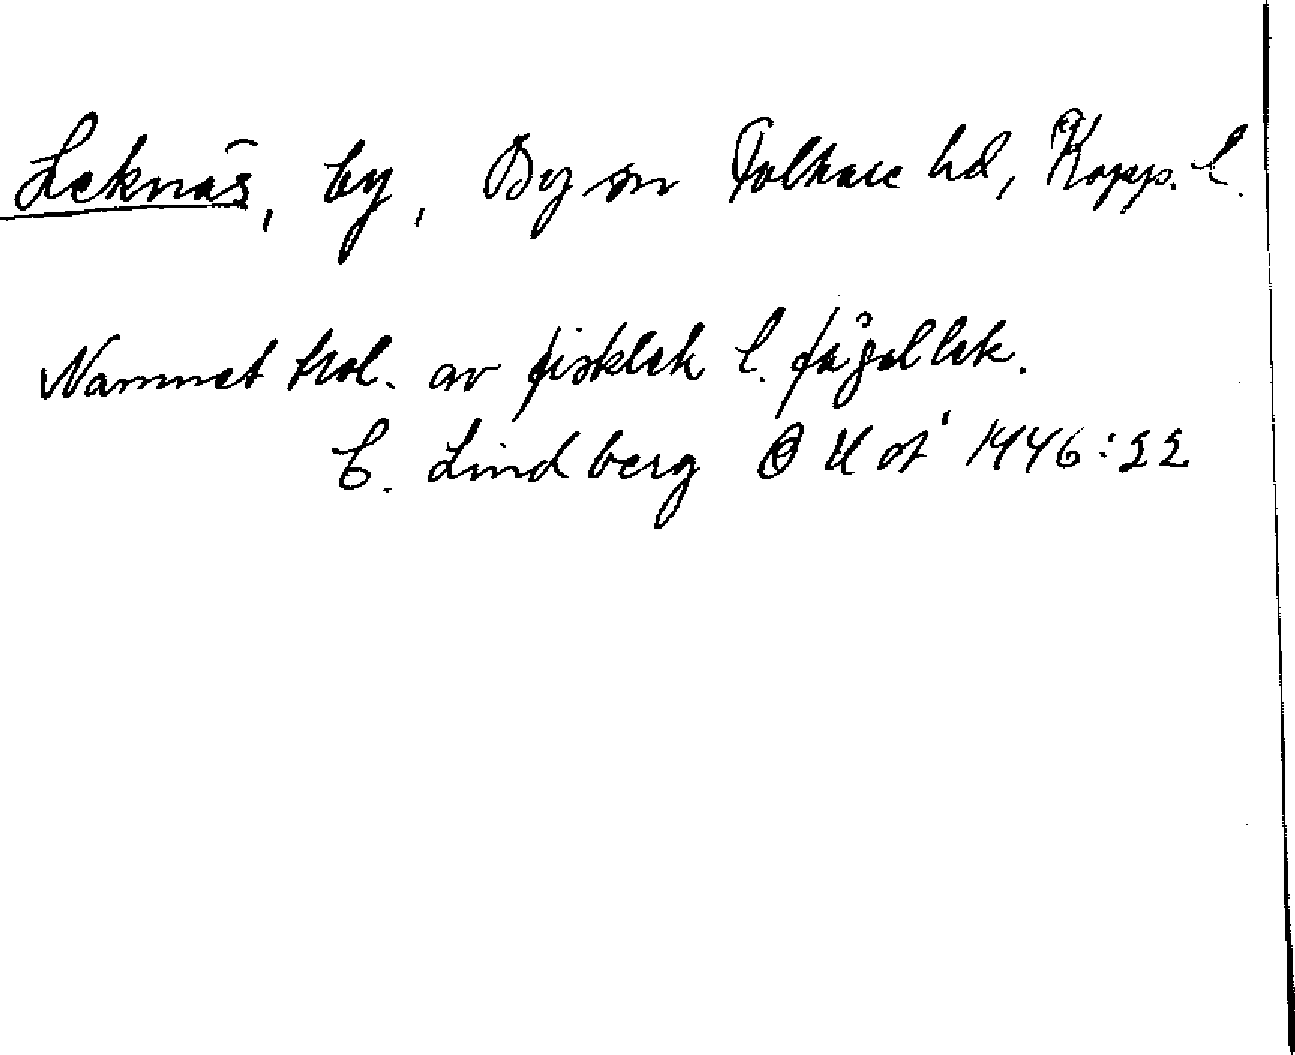 Leknäs, by, By sn Folkare hd, Kopp. l.
Namnet trol. av fisklek l. fågellek.
C. Lindberg 1946:22